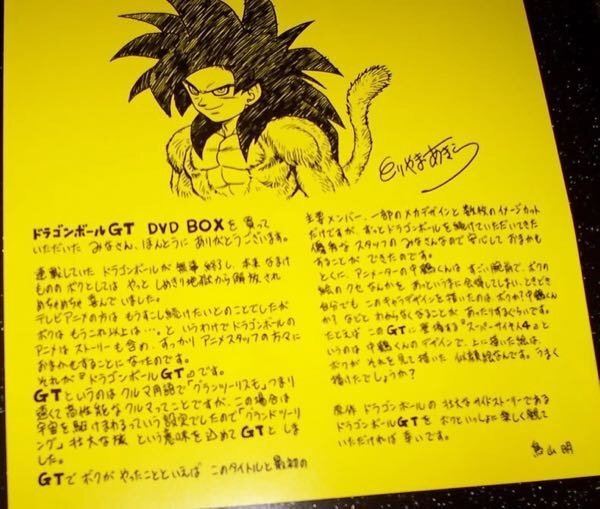 とりやまあきら
ドラゴンボールGT DVD BOXを買って
いただいた みなさん、ほんとうに ありがとうございます。
連載していた ドラゴンボールが 無事 終了し、本来 なまけ
ものの ボクとしては やっと しめきり地獄から 解放され
めちゃめちゃ 喜んで いました。
テレビアニメの方は もうすこし続けたいとのことでしたが
ボクは もうこれ以上は…。と いうわけで ドラゴンボールの
アニメは ストーリーも含め、すっかり アニメスタッフの方々に
おまかせすることに なったのです。
それが『ドラゴンボールGT』です。
GTというのは クルマ用語で「グランツーリスモ」、つまり
速くて高性能な クルマってことですが、この場合は
宇宙を駆けまわるっていう設定でしたので「グランドツーリ
ング」、壮大な旅 という意味を込めて GTと しま
した。
GTで ボクが やったことと いえば このタイトルと 最初の
主要メンバー、一部のメカデザインと 数枚の イメージカット
だけですが、ずっと ドラゴンボールを続けていただいてきた
優秀な スタッフの みなさんなので 安心して おまかせ
することが できたのです。
とくに、アニメーターの 中鶴くんは すごい腕前で、ボクの
絵の クセなんかを あっというまに 会得してしまい、ときどき
自分でも このキャラデザインを 描いたのは ボクか?中鶴くん
か? などと わからなくなることが あったりするぐらいです。
たとえば このGTに 登場する『スーパーサイヤ人4』と
いうのは 中鶴くんの デザインで、上に描いた絵は、
ボクが それを 見て 描いた 似顔絵なんです。うまく
描けたでしょうか?
原作 ドラゴンボールの 壮大な サイドストーリーである
ドラゴンボールGTを ボクと いっしょに 楽しく 観て
いただければ 幸いです。
鳥山 明